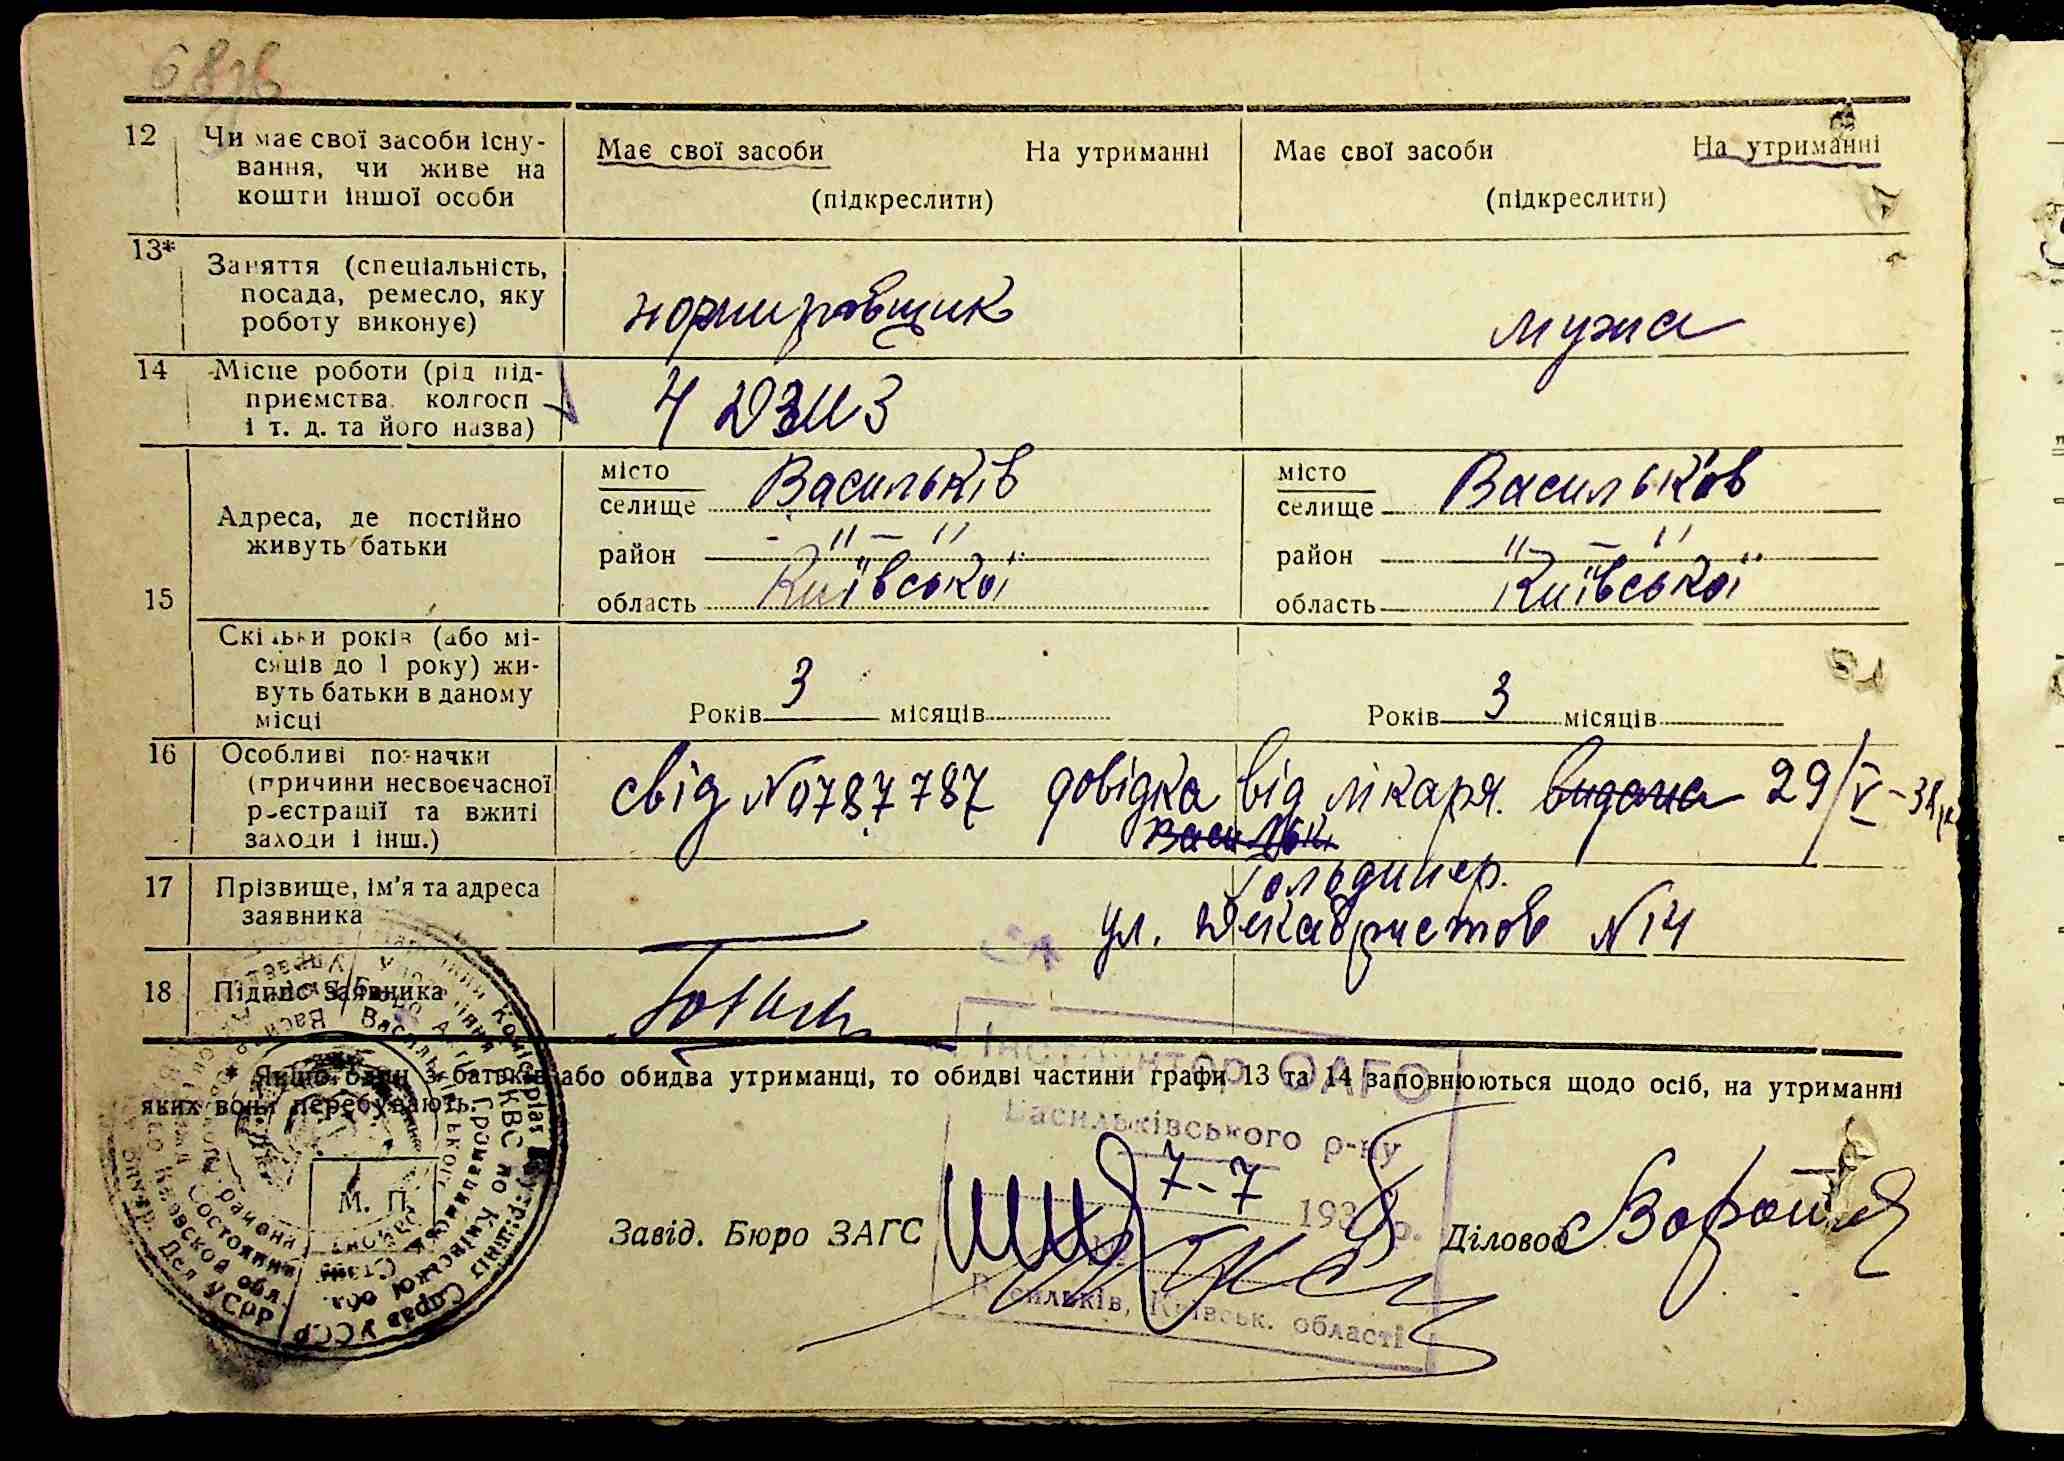 12 Чи має свої засоби існу-
вання, чи живе на
кошти іншої особи
Має свої засоби На утриманні
(підкреслити)
Має свої засоби На утриманні
(підкреслити)
13* Заняття (спеціальність,
посада, ремесло, яку
роботу виконує)
нормировщик
мужа
14 Місце роботи (рід під-
приємства, колгосп
і т. д. та його назва)
15
Адреса, де постійно
живуть батьки
місто
селище Васильків
район -"-"
область Київської
місто
селище Васильков
район "-"
область Київської
Скільки років (або мі-
сяців до 1 року) жи-
вуть батьки в даному
місці
Років 3 місяців
Років 3 місяців
16 Особливі позначки
(причини несвоєчасної
реєстрації та вжиті
заходи і інш.)
свід № 0787787 довідка від лікаря. видана 29/V-38
Васильк
17 Прізвище, ім'я та адреса
заявника
Гольдинер.
ул. Декабристов №14
18 Підпис заявника
* Якщо один з батьків або обидва утриманці, то обидві частини графи 13 та 14 заповнюються щодо осіб, на утриманні
яких вони перебувають.
Інспектор ОАГС
Васильківського р-ну
7-7 1938 р.
Васильків, Київськ. області
М. П.
Завід. Бюро ЗАГС
Діловод